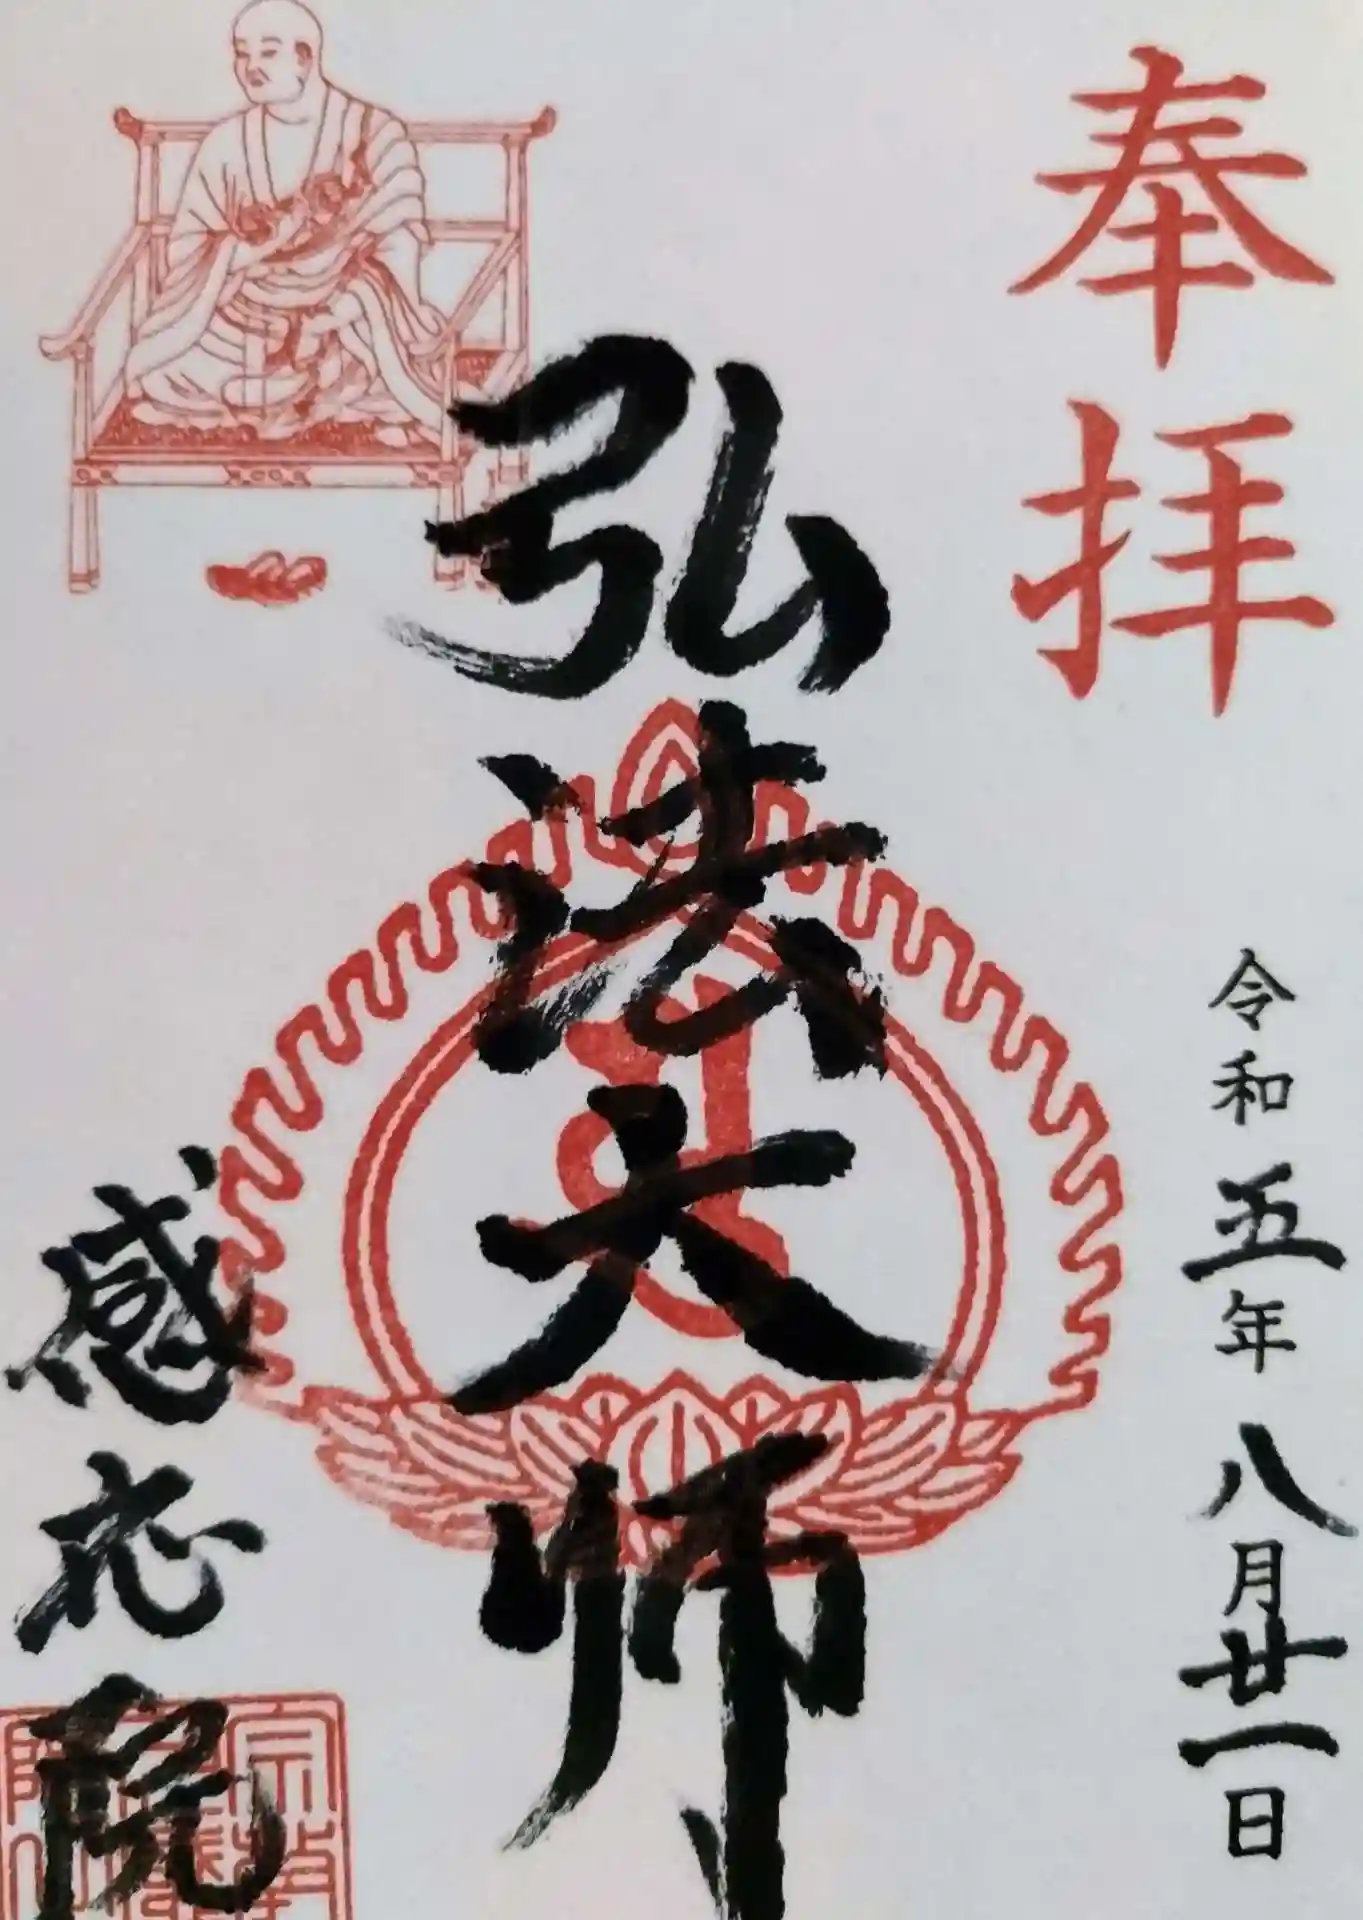 奉拝
令和五年八月廿一日
弘法大师
感応院